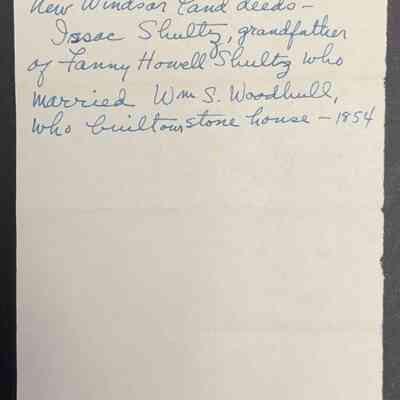 New Windsor Land deeds –
Isaac Shultz, grandfather
of Fanny Howell Shultz who
married Wm S. Woodhull,
who built our stone house – 1854